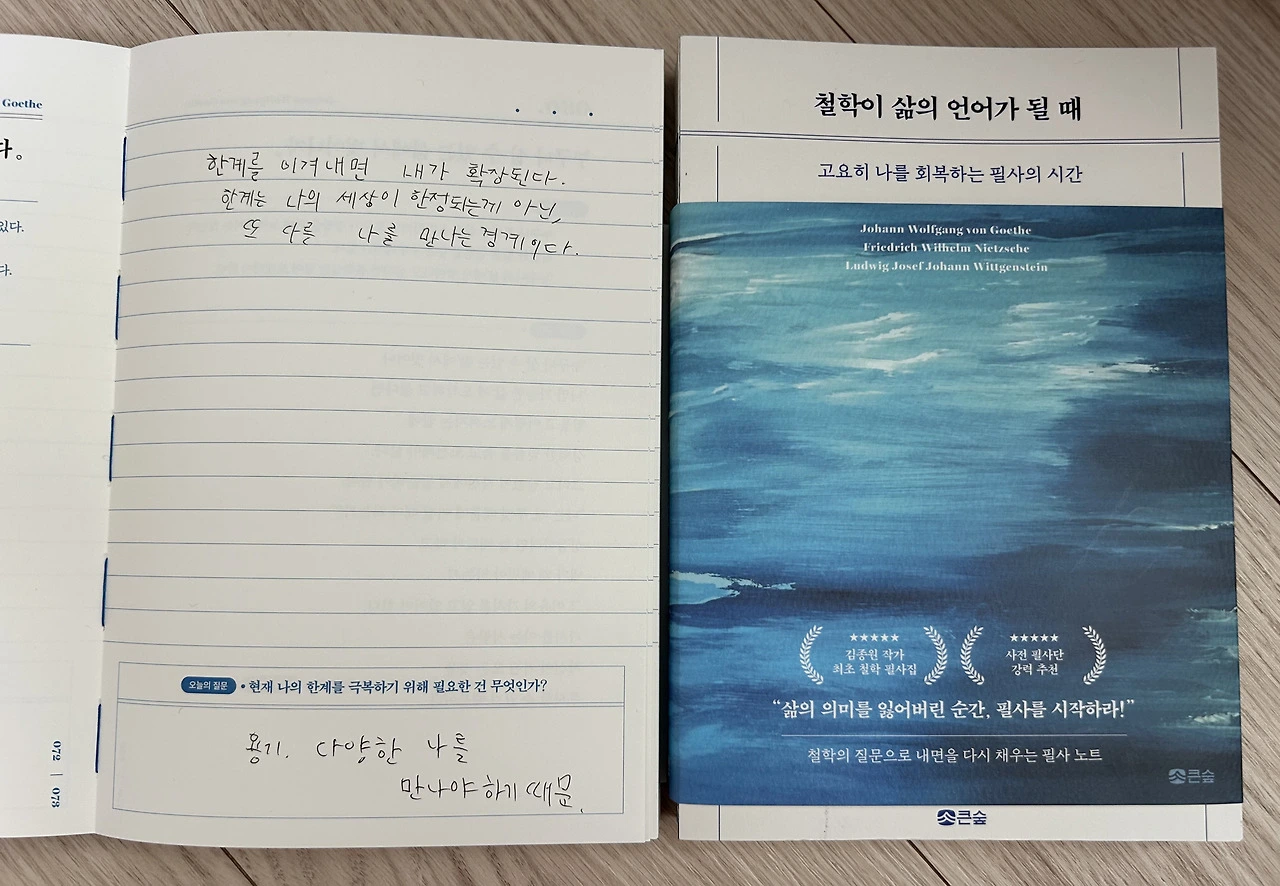 Goethe
다。
있다.
다.
한계를 이겨내면 내가 확장된다.
한계는 나의 세상이 한정되는게 아닌,
또 다른 나를 만나는 경계이다.
오늘의 질문 • 현재 나의 한계를 극복하기 위해 필요한 건 무엇인가?
용기. 다양한 나를
만나야하기 때문.
072 | 073
철학이 삶의 언어가 될 때
고요히 나를 회복하는 필사의 시간
Johann Wolfgang von Goethe
Friedrich Wilhelm Nietzsche
Ludwig Josef Johann Wittgenstein
★★★★★
김종원 작가
최초 철학 필사집
★★★★★
사전 필사단
강력 추천
“삶의 의미를 잃어버린 순간, 필사를 시작하라!”
철학의 질문으로 내면을 다시 채우는 필사 노트
큰숲
큰숲